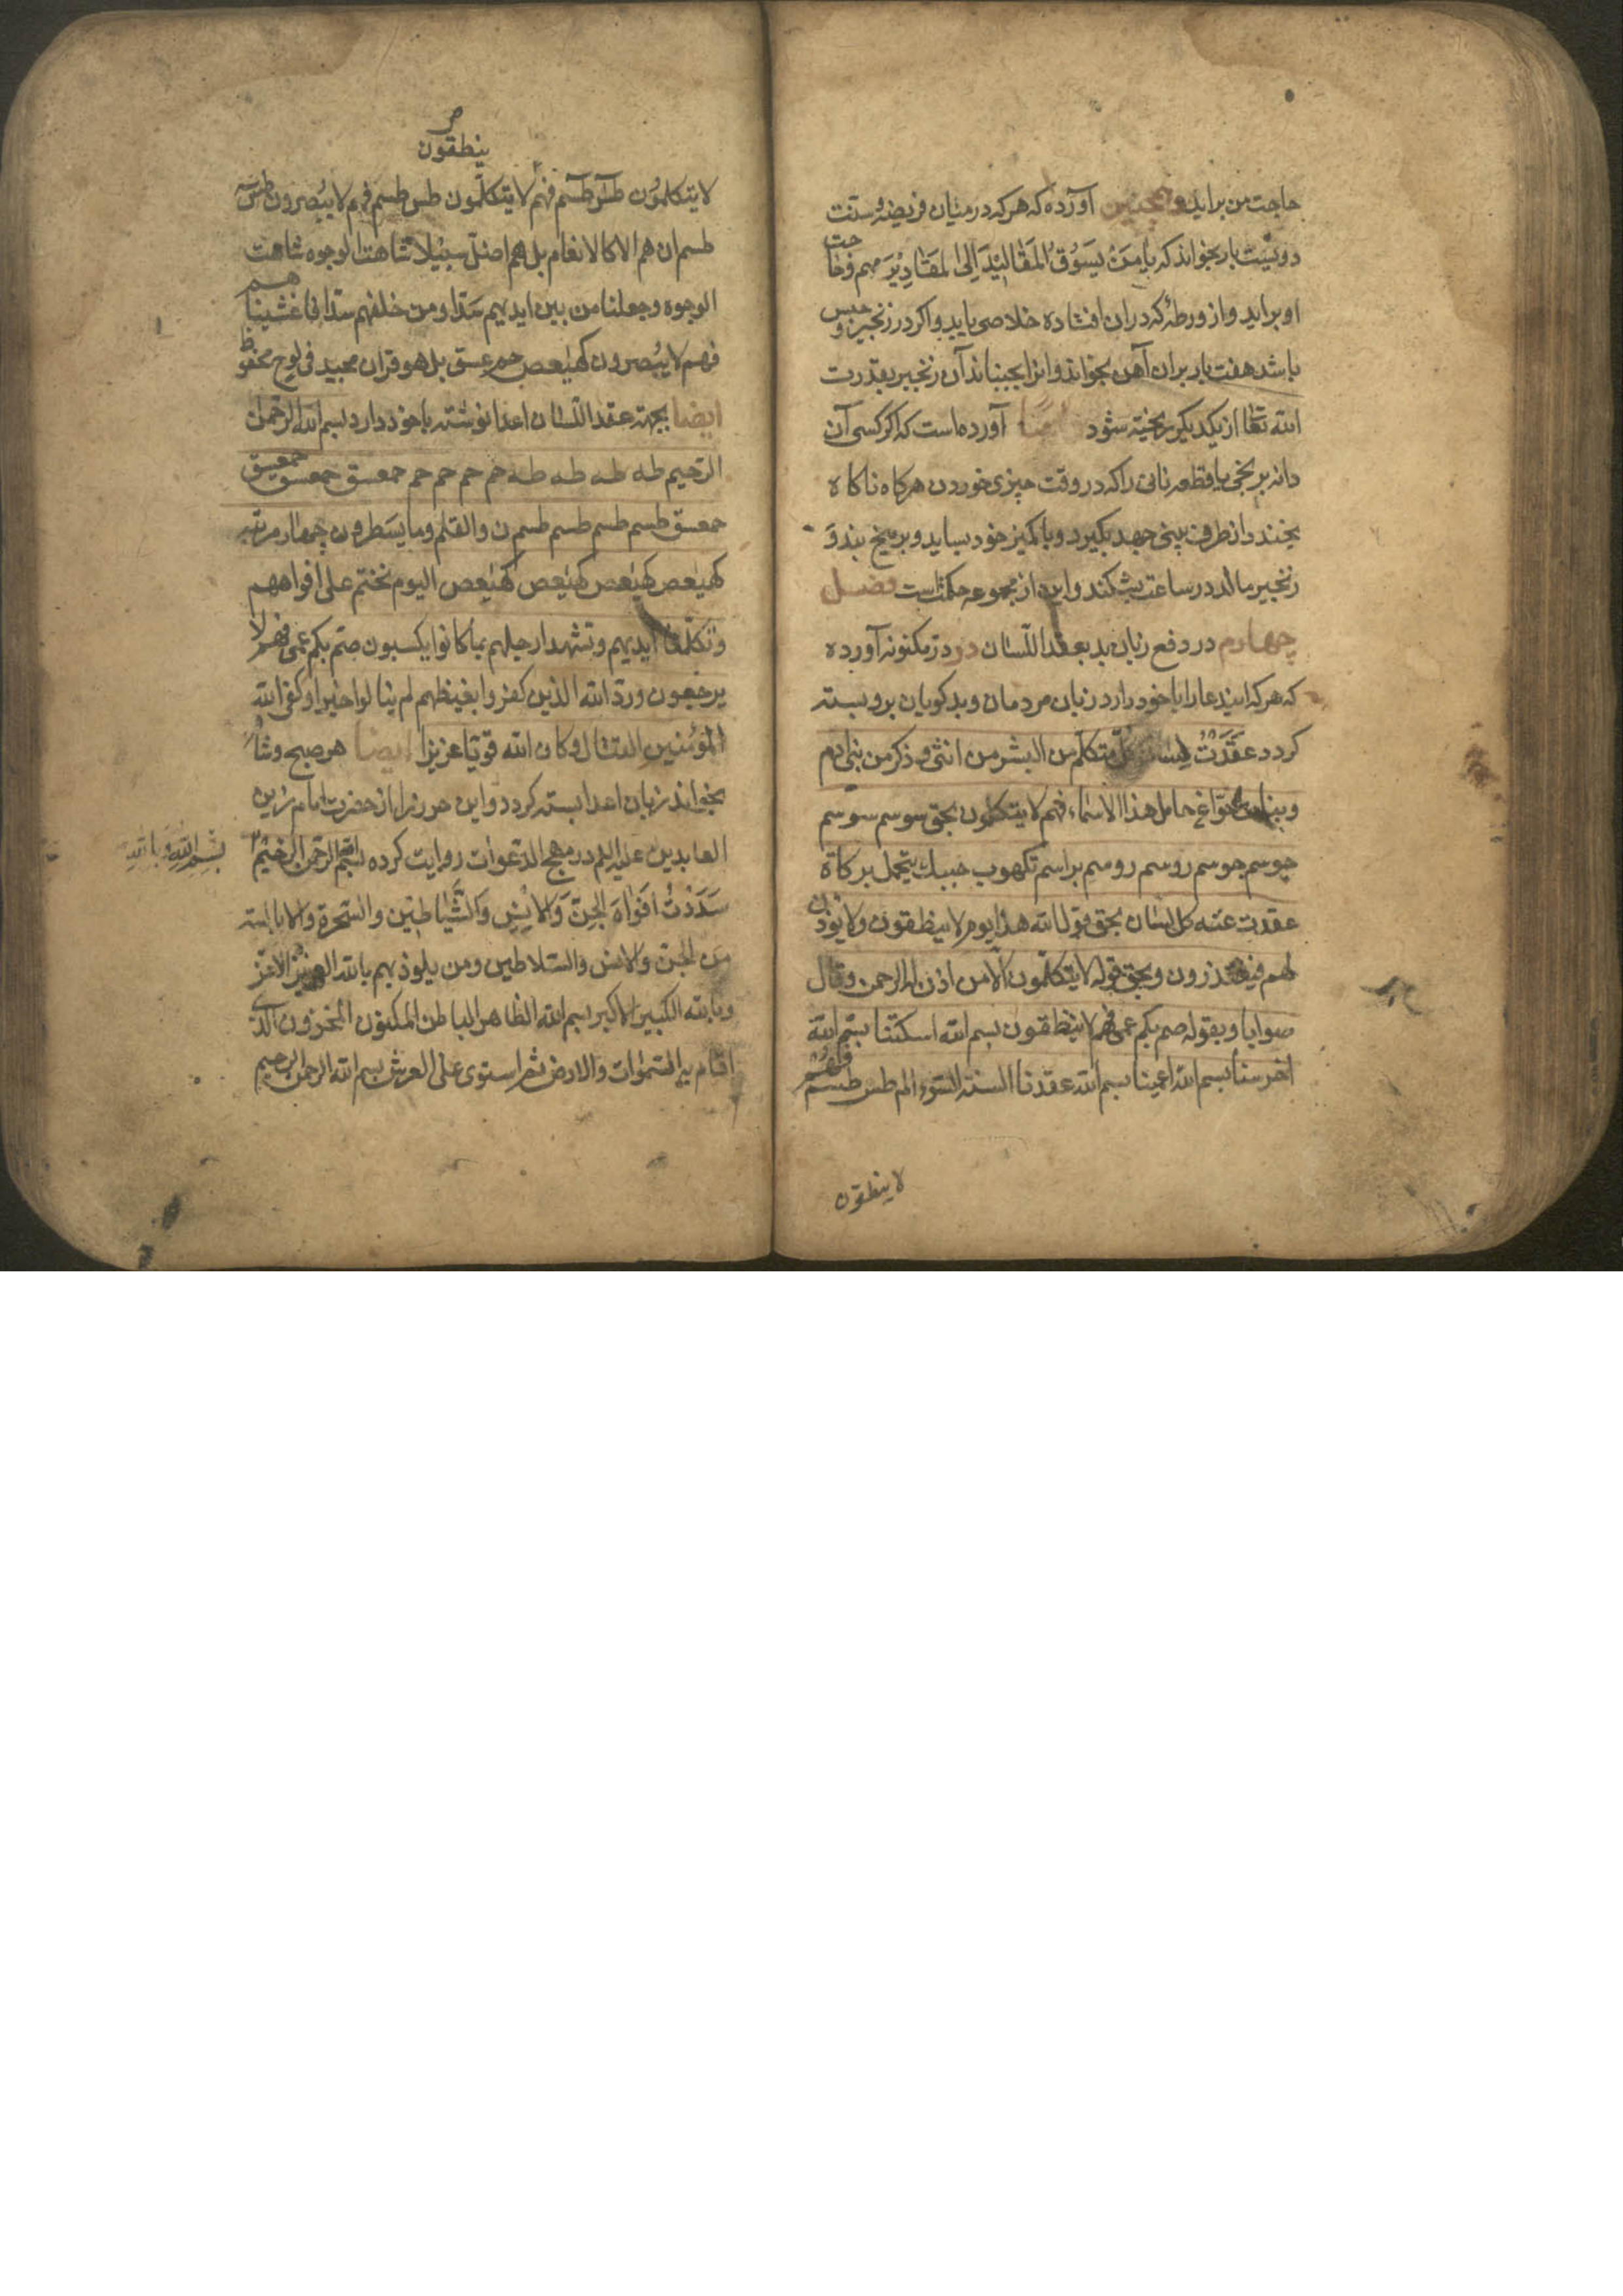 حاجت من براید و همچنین آورده که هر که در میان فریضه و سنت
دویست بار بخواند که یا مَنْ یَسُوقُ المَقالیْدَ اِلی المَقادِیْرَ مهم و حاجت
او براید و از ورطهٔ که در ان افتاده خلاصی یابد و اکر در زنجیر و حبس
باشد هفت بار بران آهن بخواند و انرا بجنباند آن زنجیر بقدرت
الله تعالی از یکدیکر ریخته شود ایضا آورده است که اکر کسی آن
دانه برنجی یا قطعه نانی را که در وقت چیزی خوردن هرکاه ناکاه
بخندد از طرف بینی جهد بکیرد و با کمیز خود بساید و بر میخ بند و
زنجیر مالد در ساعت بشکند و این از مجموعه حکمتاست فصل
چهارم در دفع زبان بد بعقد اللسان در در مکنونه آورده
که هر که ایندعا را با خود دارد زبان مردمان و بدکویان برو بسته
کردد عَقَدَتُ لِسان کلّ متکلم من البشر من انثی و ذکر من بنی ادم
حامل هذا الاسماء فهم لا یتکلمون بحق سوسم سوسم
جوسم جوسم روسم روسم براسم تکهوب
عقدت عنه کل لسان بحق قول الله هذا یوم لا ینطقون ولا یوذن
لهم فیعتذرون وبحق قوله لا یتکلّمون الّا من اذن له الرحمن وقال
صوابا وبقوله صم بکم عمی فهم لا ینطقون بسم الله اسکتنا بسم الله
اخرسنا بسم الله اعمینا بسم الله عقدنا السنة السّوء الم طس طسم فهم
لا ینطقون
ینطقون
لا یتکلمُون طسٓ طسٓم فهم لا یتکلّمون طس طسم فهم لا یُبْصرون طس
طسم ان هم الا کالانعام بل هم اضلّ سبیلا شاهت الوجوه شاهت
الوجوه وجعلنا من بین ایدیهم سَدّا ومن خلفهم سدّا فاغشیناهم
فهم لا یُبْصرون کهیعص حم عسق بل هو قران مجید فی لوح محفوظ
ایضا بجهة عقد اللسان اعدا نوشته با خود دارد بسم الله الرّحمن
الرّحیم طه طه طه طه حم حم حم حم حمعسق حمعسق حمعسق
حمعسق طسم طسم طسم طسم ن والقلم وما یسَطرون چهار مرتبه
کهیٰعص کهیٰعص کهیٰعص کهیٰعص الیوم نختم علی افواههم
وتکلّمنا ایدیهم وتشهد ارجلهم بما کانوا یکسبون صم بکم عمی فهم لا
یرجعون وردّ الله الذین کفروا بغیظهم لم ینالوا خیرا وکفی الله
المؤمنین القتال وکان الله قویّا عزیزا ایضا هر صبح و شام
بخواند زبان اعدا بسته کردد و این حرز را از حضرت امام زین
العابدین علیه السلم در مهج الدّعوات روایت کرده بسم الله الرّحمن الرّحیمْ
بِسْمِ اللهِ وَبِاللهِ
سَدَدْتُ افَواهَ الجِنّ وَالاِنْسِ وَالشَّیاطین والسّحرة والابالسه
من الجن والانس والسّلاطین ومن یلوذ بهم بالله العزیز الاعزّ
وبالله الکبیر الاکبر بسم الله الظاهر الباطن المکنون المخزون الّذی
اقام به السّموات والارض ثم استوی علی العرش بسم الله الرحمن الرحیم